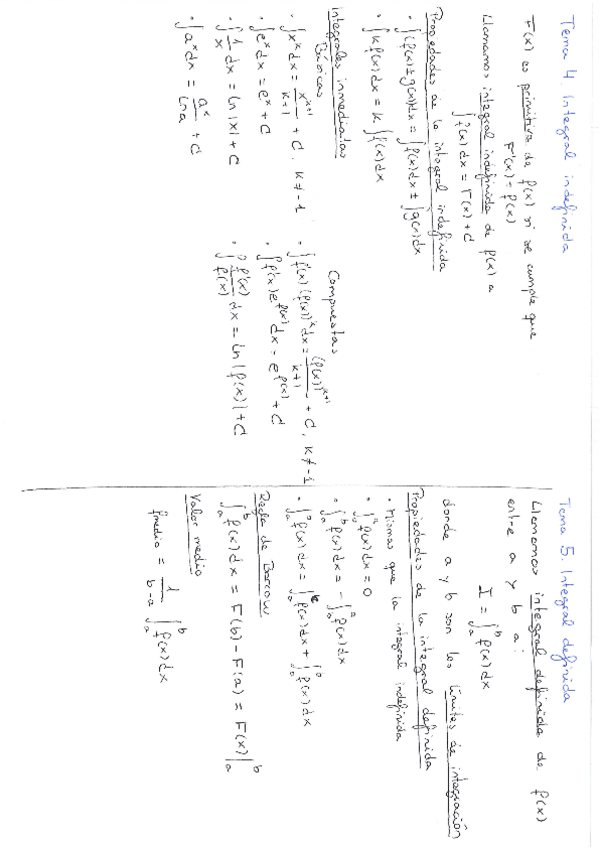 Tema 4. Integral indefinida
F(x) es primitiva de f(x) si se cumple que
F'(x) = f(x)
Llamamos integral indefinida de f(x) a
∫f(x)dx = F(x) + C
Propiedades de la integral indefinida
• ∫(f(x) ± g(x))dx = ∫f(x)dx ± ∫g(x)dx
• ∫k f(x)dx = k ∫f(x)dx
Integrales inmediatas
Básicas
• ∫x^k dx = x^(k+1)/(k+1) + C, k ≠ -1
• ∫e^x dx = e^x + C
• ∫1/x dx = ln|x| + C
• ∫a^x dx = a^x/ln a + C
Compuestas
• ∫f'(x)(f(x))^k dx = (f(x))^(k+1)/(k+1) + C, k ≠ -1
• ∫f'(x)e^f(x) dx = e^f(x) + C
• ∫f'(x)/f(x) dx = ln|f(x)| + C
Tema 5. Integral definida
Llamamos integral definida de f(x)
entre a y b a:
I = ∫_a^b f(x)dx
donde a y b son los límites de integración
Propiedades de la integral definida
• Mismas que la integral indefinida
• ∫_a^a f(x)dx = 0
• ∫_a^b f(x)dx = - ∫_b^a f(x)dx
• ∫_a^b f(x)dx = ∫_a^c f(x)dx + ∫_c^b f(x)dx
Regla de Barrow
∫_a^b f(x)dx = F(b) - F(a) = F(x)|_a^b
Valor medio
fmedio = 1/(b-a) ∫_a^b f(x)dx